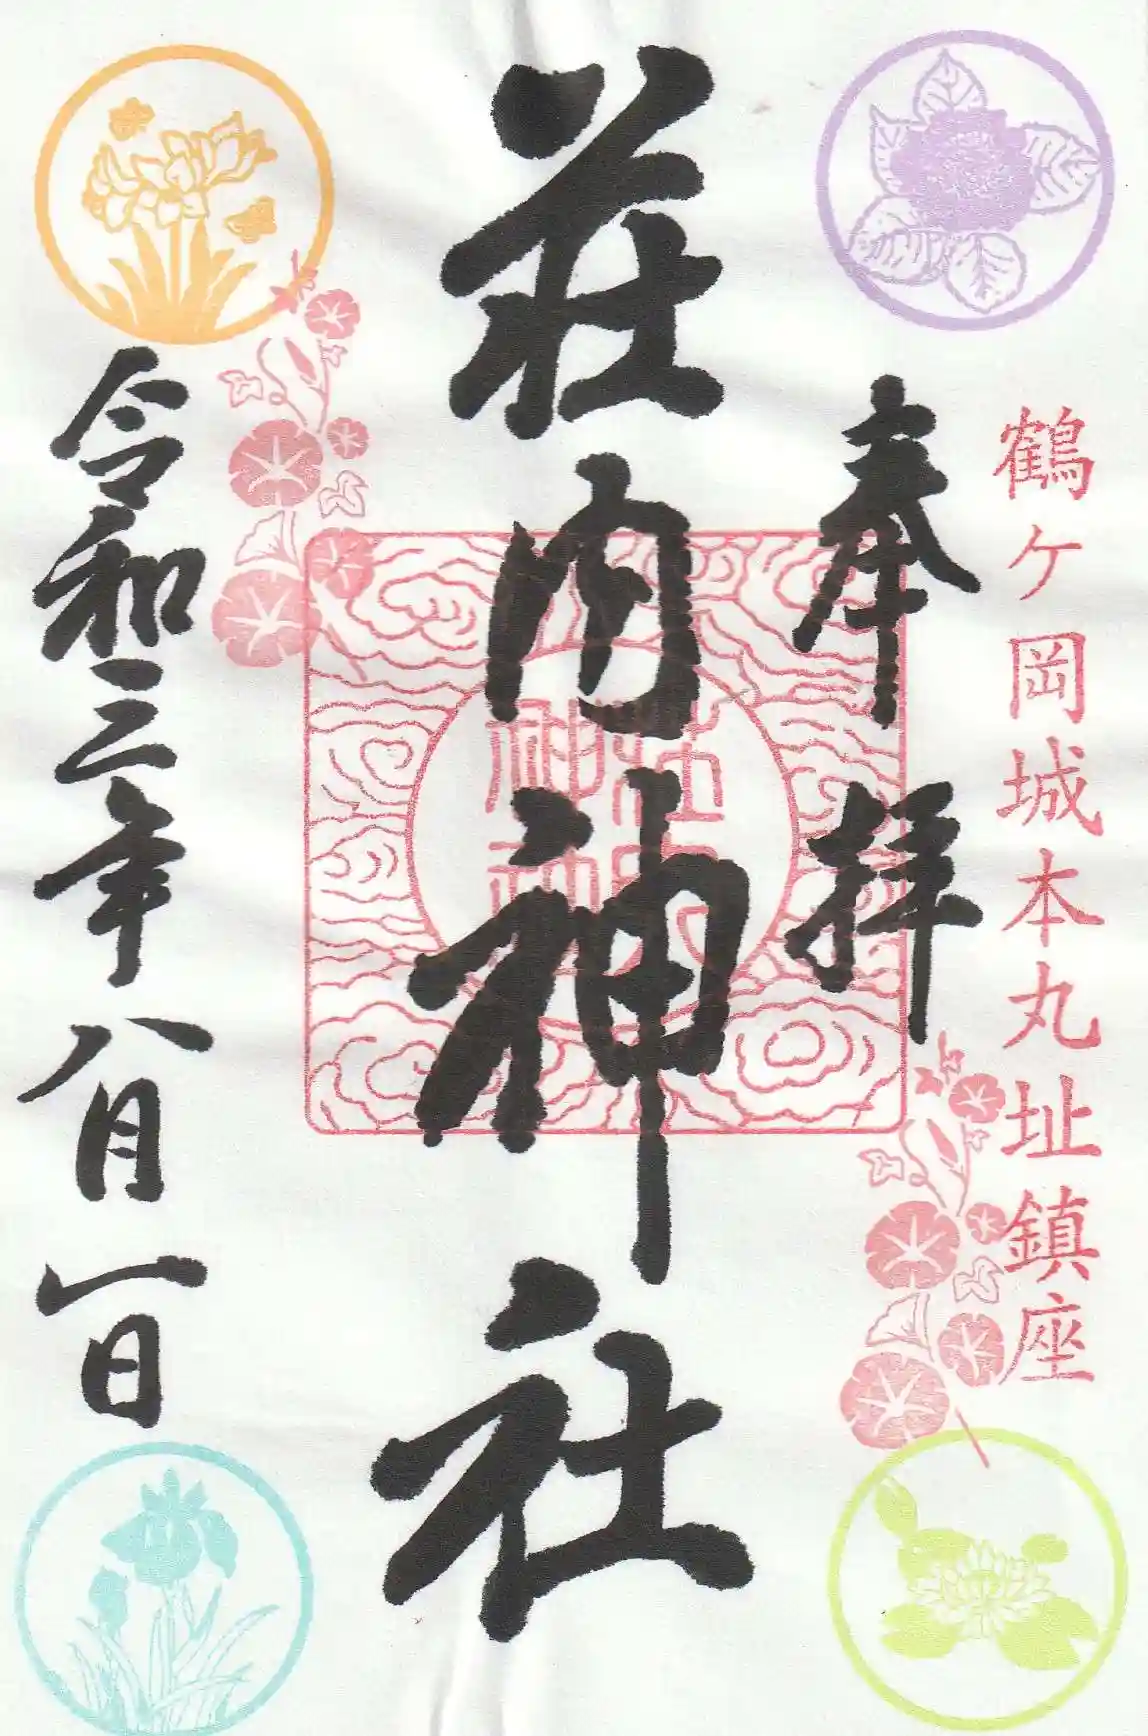 鶴ケ岡城本丸址鎮座
奉拝
荘内神社
令和三年八月一日